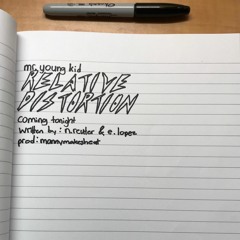 mr. young kid
RELATIVE
DISTORTION
coming tonight
written by: n.reuter & e.lopez
prod: mannymakesheat